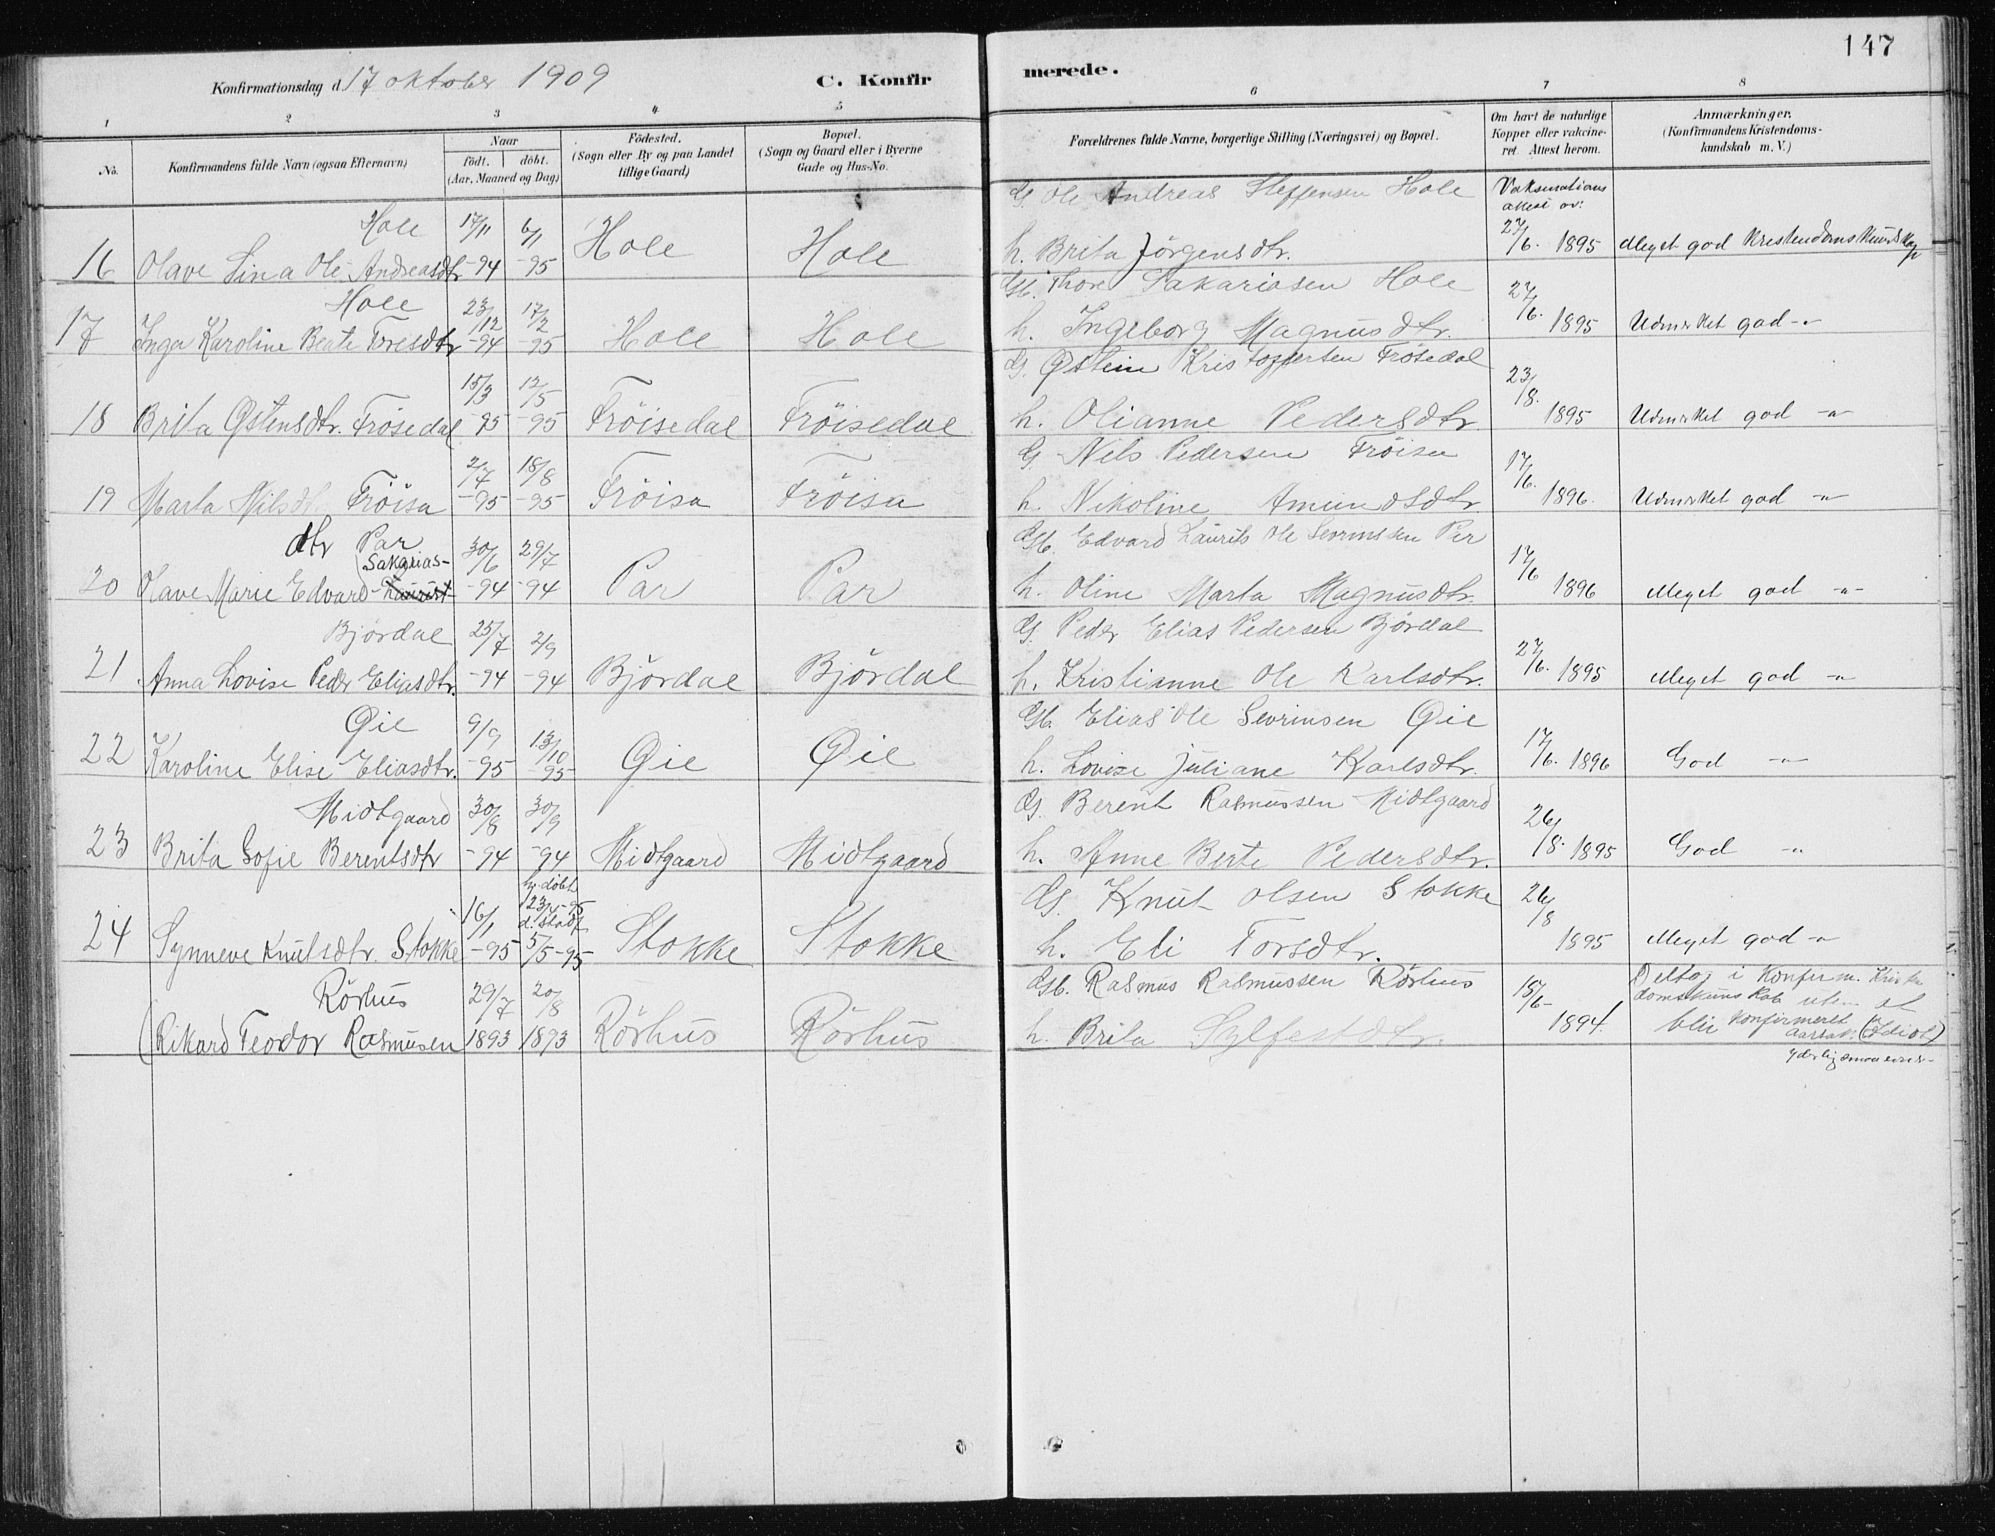 147
Konfirmationsdag d. 17 oktober 1909
C. Konfirmerede.
1 2 3 4 5 6 7 8
No. Konfirmandens fulde Navn (ogsaa Efternavn) Naar födt. döbt. (Aar, Maaned og Dag) Födested. (Sogn eller By og paa Landet tillige Gaard) Bopæl. (Sogn og Gaard eller i Byerne Gade og Hus-No. Forældrenes fulde Navne, borgerlige Stilling (Næringsvei) og Bopæl. Om havt de naturlige Kopper eller vakcineret. Attest herom. Anmærkninger. (Konfirmandens Kristendomskundskab m. V.)
G. Ole Andreas Steffensen Hole Vaksinations attest av:
Hole 17/11 6/1 Hole Hole 27/6.
16 Olave Lina Ole Andreasdtr -94 -95 h. Brita Jörgensdtr. 1895 Meget god Kristendomskundskap
Hole 23/12 17/2 Gb. Thore Sakariasen Hole 27/6.
17 Inga Karoline Beate Toresdtr -94 -95 Hole Hole h. Ingeborg Magnusdtr. 1895 Udmerket god -"-
15/3 12/5 G. Østein Kristoffersen Frösedal 23/8.
18 Brita Østensdtr. Frösedal -95 -95 Fröisedal Fröisedal h. Olianne Pedersdtr 1895 Udmerket god -"-
2/7 18/8 G. Nils Pedersen Fröisa 17/6.
19 Marta Nilsdtr Fröisa -95 -95 Fröisa Fröisa h. Nikoline Amundsdtr. 1896. Udmerket god -"-
dtr Par 30/6 29/7 Gb. Edvard Laurits Ole Sevrinssen Per
Sakarias- 17/6
20 Olave Marie Edvard Laurist -94 -94 Par Par h. Oline Marta Magnusdtr. 1896 Meget god -"-
Bjørdal 25/7 2/9 G. Peder Elias Pedersen Bjørdal
21 Anna Lovise Peder Eliasdtr. -94 -94 Bjørdal Bjørdal h. Kristianne Ole Karlsdtr. 27/6. 1895 Meget god -"-
Øie 9/9 13/10 Gb. Elias Ole Sevrinsen Øie
22 Karoline Elise Eliasdtr. -95 -95 Øie Øie h. Lovise Juliane Karlsdtr. 17/6. 1896 God -"-
Midtgaard 30/8 30/9 G. Berent Rasmussen Midtgaard
23 Brita Sofie Berentsdtr -94 -94 Midtgaard Midtgaard h. Anne Berte Pedersdtr. 26/8. 1895 God -"-
hj. döbt 23/4-95
16/1 d. stadf. G. Knut Olsen Stokke 26/8
24 Synneve Knutsdtr. Stokke -95 5/5-95 Stokke Stokke h. Eli Torsdtr. 1895 Meget god -"-
Rörhus 29/7 20/8 Gb. Rasmus Rasmussen Rörhus 15/6- Deltog i Konferm. Kristendomskunskab uten at
(Rikard Teodor Rasmusen 1893 1893 Rörhus Rörhus h. Brita Sylfestdtr. 1894. bli Konfirmert
Aarsak. (Idiot)